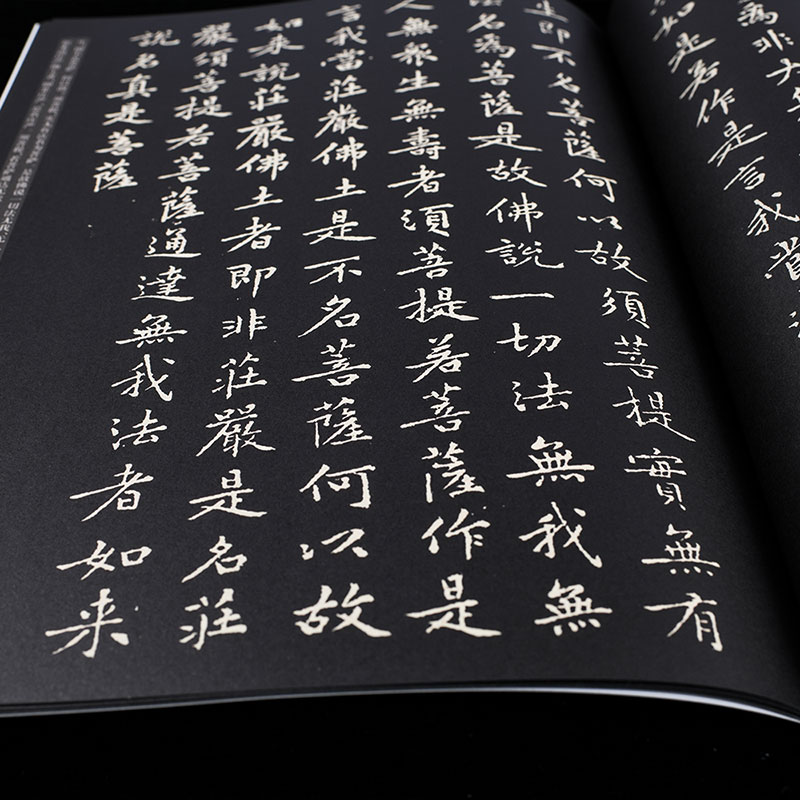 為非大
如是若作是言我當
生即不名菩薩何以故須菩提實無有
法名為菩薩是故佛說一切法無我無
人無眾生無壽者須菩提若菩薩作是
言我當莊嚴佛土是不名菩薩何以故
如来說莊嚴佛土者即非莊嚴是名莊
嚴須菩提若菩薩通達無我法者如来
說名真是菩薩